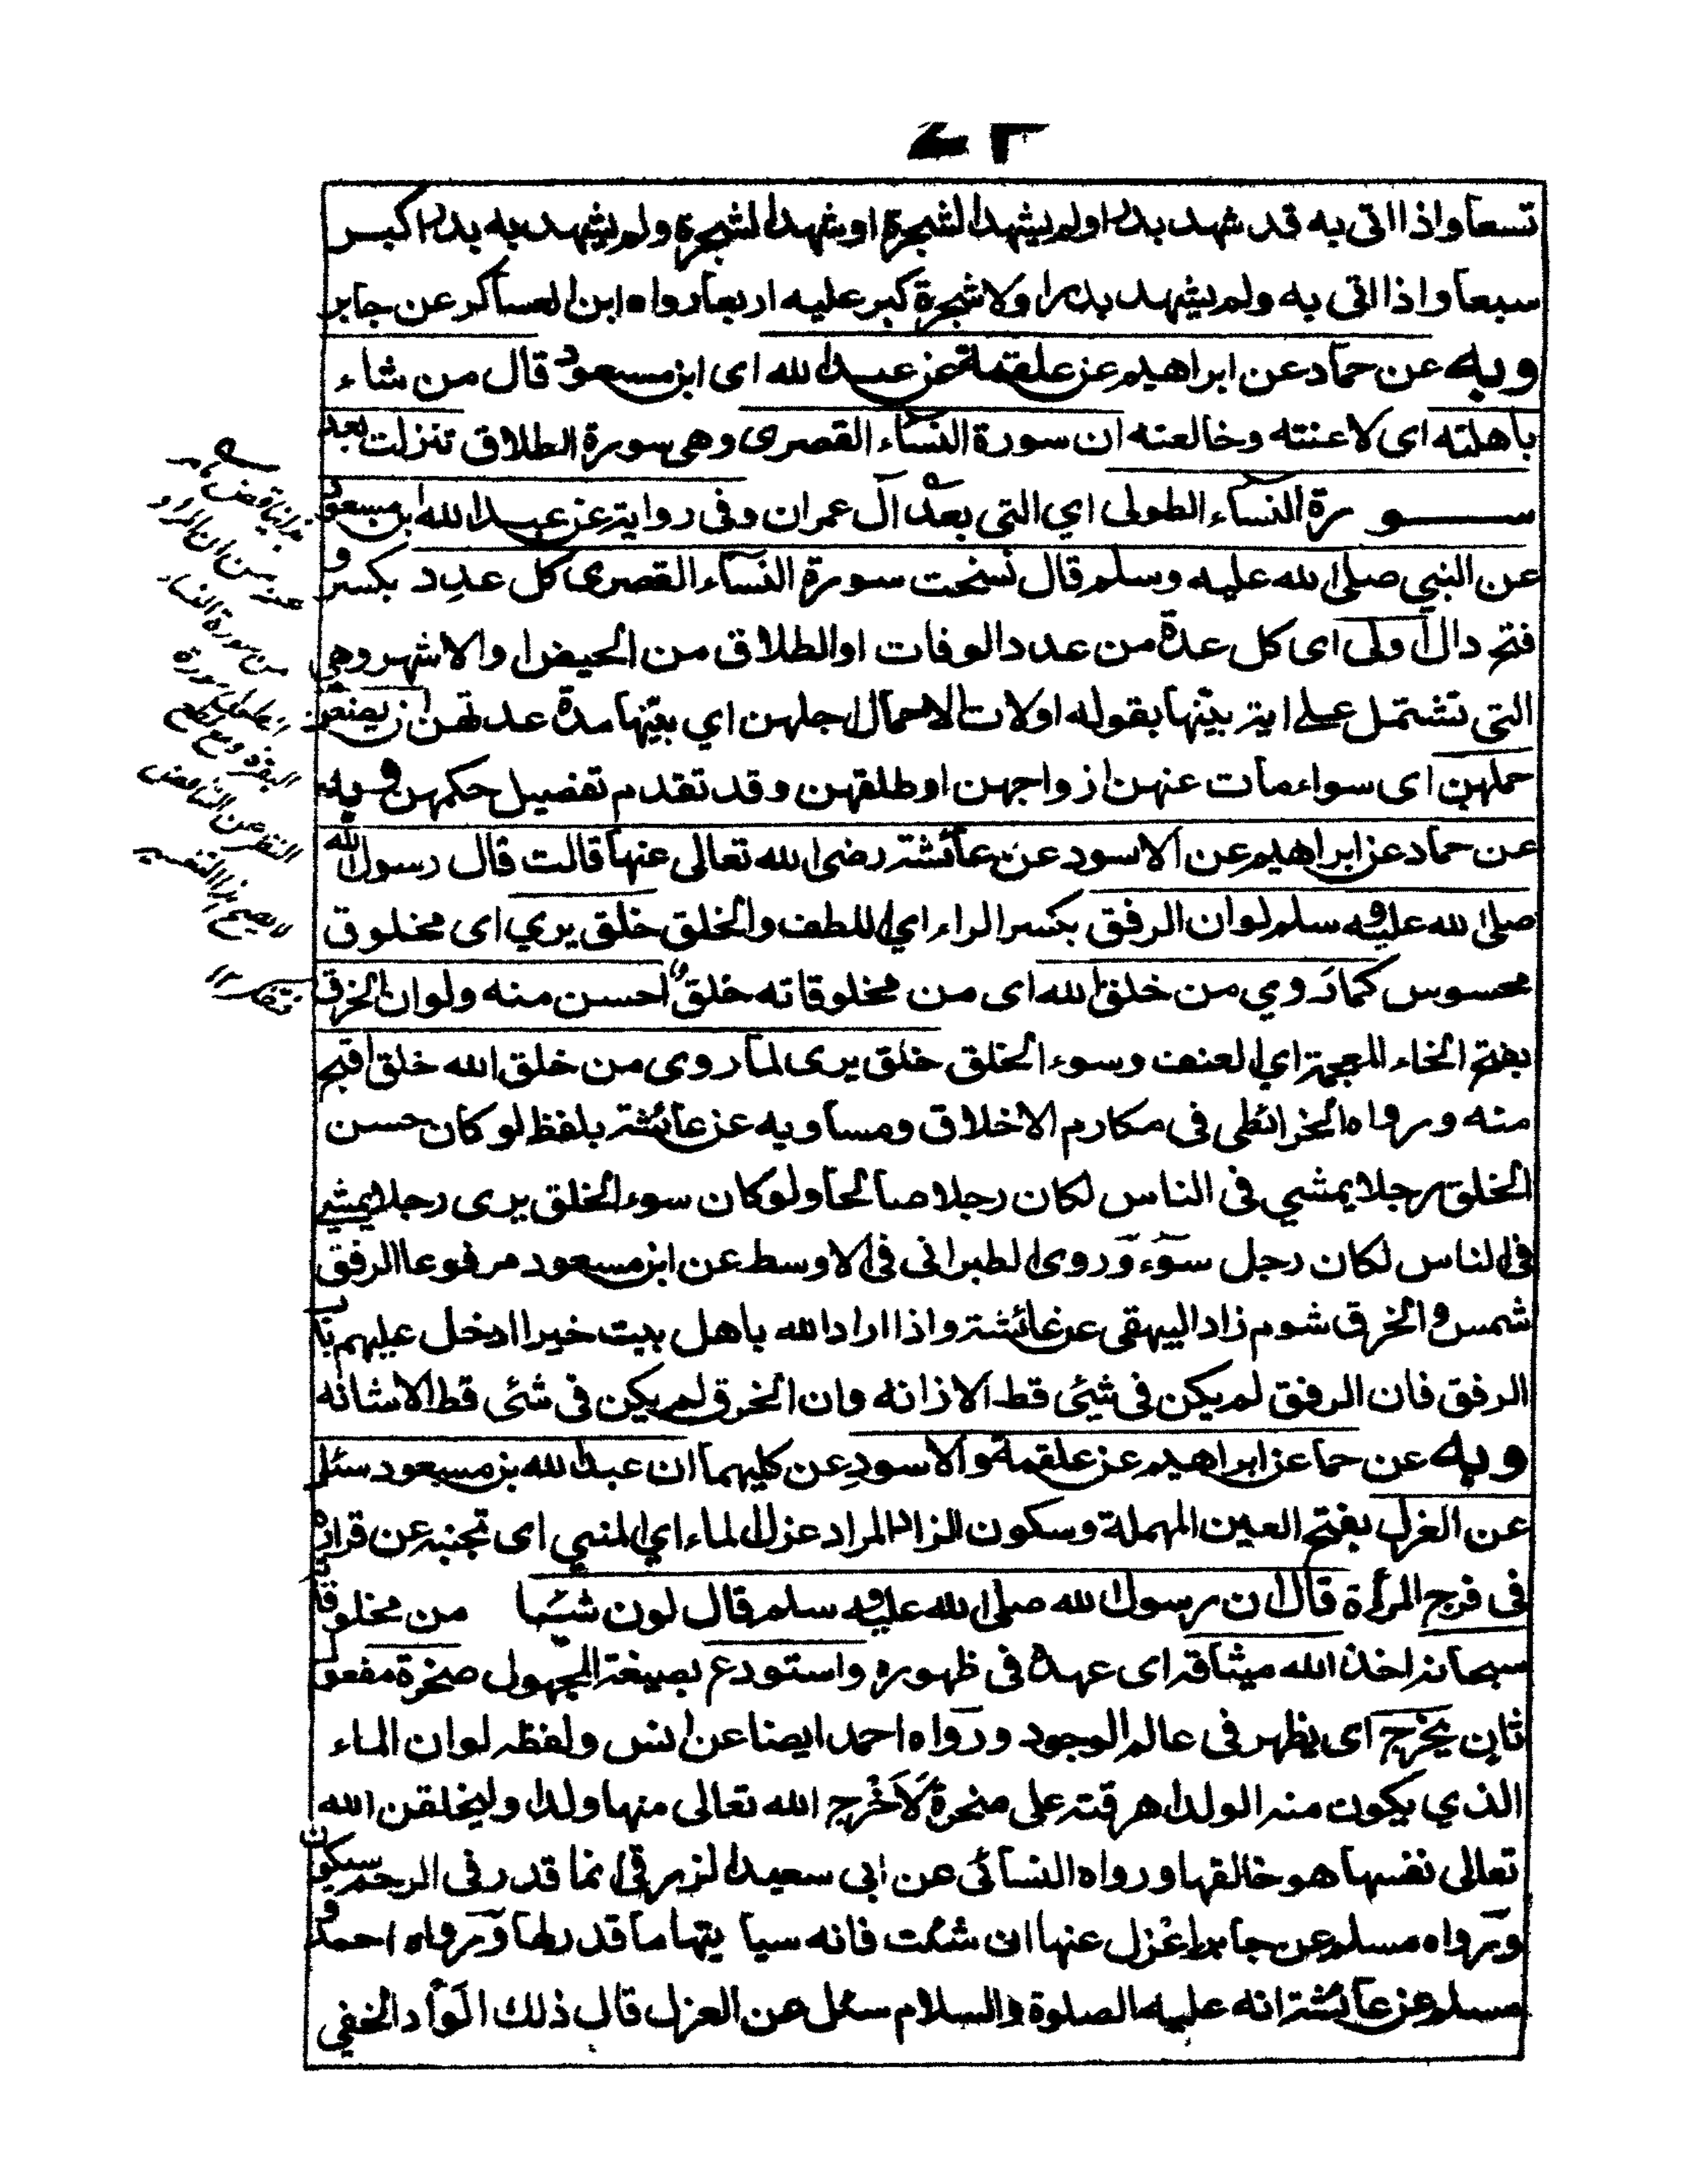 تسعا واذا اتى به قد شهد بدرا ولم يشهد الشجرة او شهد الشجرة ولم يشهد به بدرا كبر
سبعا واذا اتى به ولم يشهد بدرا ولا شجرة كبر عليه اربعا رواه ابن العساكر عن جابر
وبه عن حماد عن ابراهيم عن علقمة عن عبد الله اى ابن مسعود قال من شاء
باهلته اى لاعنته وخالعته ان سورة النساء القصرى وهى سورة الطلاق تنزلت بعد
سورة النساء الطولى اي التي بعد آل عمران وفى رواية عن عبد الله بن مسعود
عن النبي صلى الله عليه وسلم قال نسخت سورة النساء القصرى كل عدد بكسر و
فتح دال اولى اى كل عدة من عدد الوفات او الطلاق من الحيض او الاشهر وهي
التى تشتمل على اية بيتها بقوله اولات الاحمال اجلهن اي بيتها مدة عدتهن ان يضعن
حملهن اى سواء مات عنهن ازواجهن او طلقهن وقد تقدم تفصيل حكمهن وبه
عن حماد عن ابراهيم عن الاسود عن عائشة رضى الله تعالى عنها قالت قال رسول الله
صلى الله عليه و سلم لو ان الرفق بكسر الراء اي اللطف والخلق خلق يري اى مخلوق
محسوس كما روي من خلق الله اى من مخلوقاته خلق احسن منه ولو ان الخرق
بفتح الخاء المعجمة اي العنف وسوء الخلق خلق يرى لما روى من خلق الله خلق اقبح
منه ورواه الخرائطى فى مكارم الاخلاق ومساويه عن عائشة بلفظ لو كان حسن
الخلق رجلا يمشي فى الناس لكان رجلا صالحا ولو كان سوء الخلق يرى رجلا يمشي
فى الناس لكان رجل سوء وروى الطبرانى فى الاوسط عن ابن مسعود مرفوعا الرفق
شمس والخرق شوم زاد البيهقى عن عائشة واذا اراد الله باهل بيت خيرا ادخل عليهم باب
الرفق فان الرفق لم يكن فى شيئ قط الا زانه وان الخرق لم يكن فى شئى قط الا شانه
وبه عن حما عن ابراهيم عن علقمة والاسود عن كليهما ان عبد الله بن مسعود سئل
عن الغزل بفتح العين المهملة وسكون الزا المراد عزل الماء اي المني اى تجنبه عن قراره
فى فرج المرأة قال ان رسول الله صلى الله عليه و سلم قال لون شيئا من مخلوقاته
سبحانه اخذ الله ميثاقه اى عهده فى ظهوره واستودع بصيغة المجهول صخرة مفعول
ثان يخرج اى يظهر فى عالم الوجود ورواه احمد ايضا عن انس ولفظه لو ان الماء
الذي يكون منه الولد اهرقته على صخرة لاخرج الله تعالى منها ولدا وليخلقن الله
تعالى نفسها هو خالقها ورواه النسائى عن ابى سعيد الزرقى انما قدر فى الرحم سيكون
ورواه مسلم عن جابر اعزل عنها ان شئت فانه سيا يتها ما قدر لها ورواه احمد و
مسلم عن عائشة انه عليه الصلوة والسلام سئل عن العزل قال ذلك الوأد الخفي